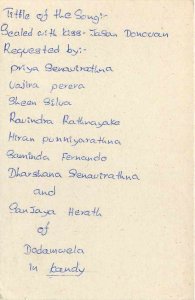 Tittle of the Song:-
Sealed with kiss - Jason Donovan
Requested by:-
Priya Senavirathna
Vajira perera
Sheen Silva
Ravindra Rathnayake
Hiran punniyarathna
Saminda Fernando
Dharshana Senavirathna
and
Sanjaya Herath
of
Dodamwela
in kandy